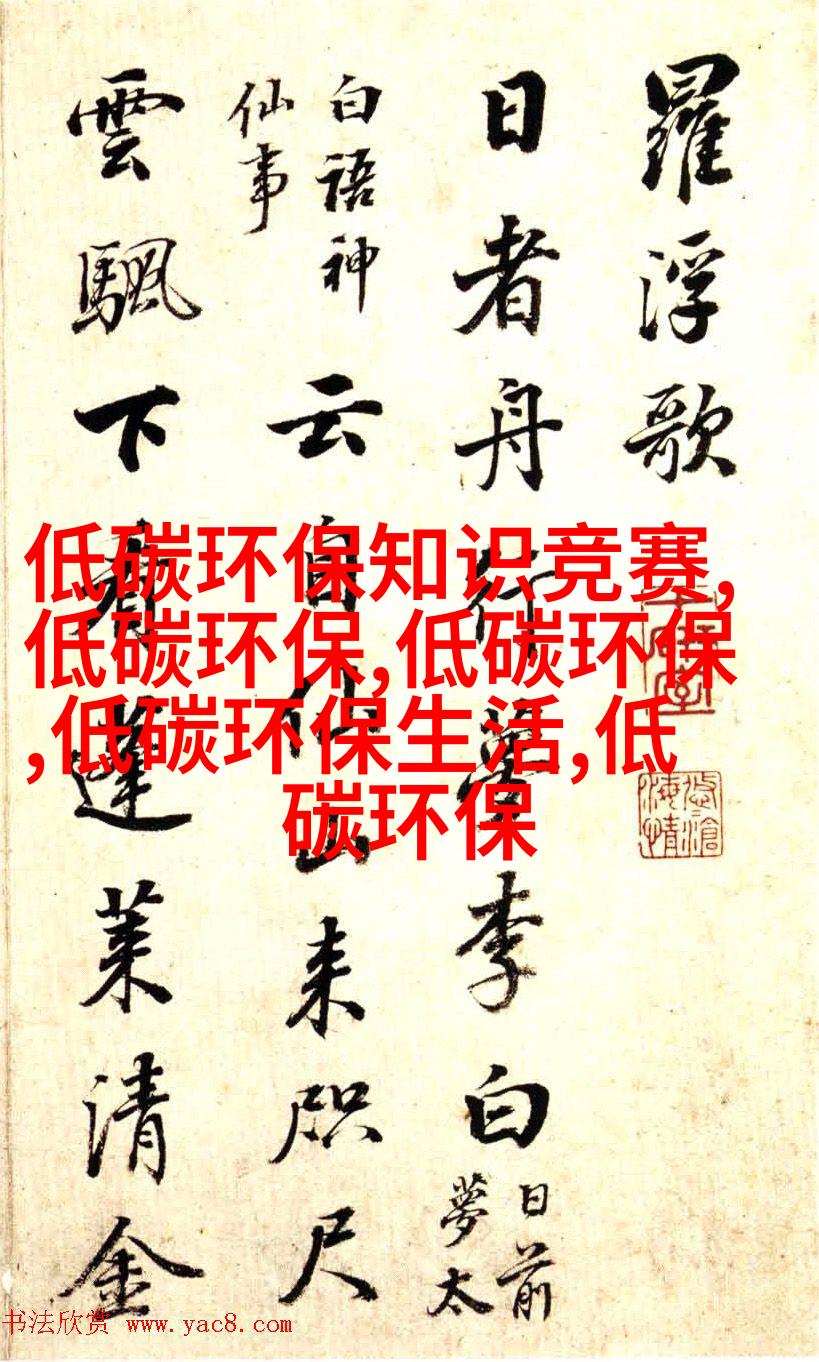 羅浮歌
日者舟行夢李白
日前
夢太
白語神
仙事
云自仙山来咫尺
雲颿下看蓬莱清金
低碳环保知识竞赛,
低碳环保,低碳环保
,低碳环保生活,低
碳环保
书法欣赏 www.yac8.com